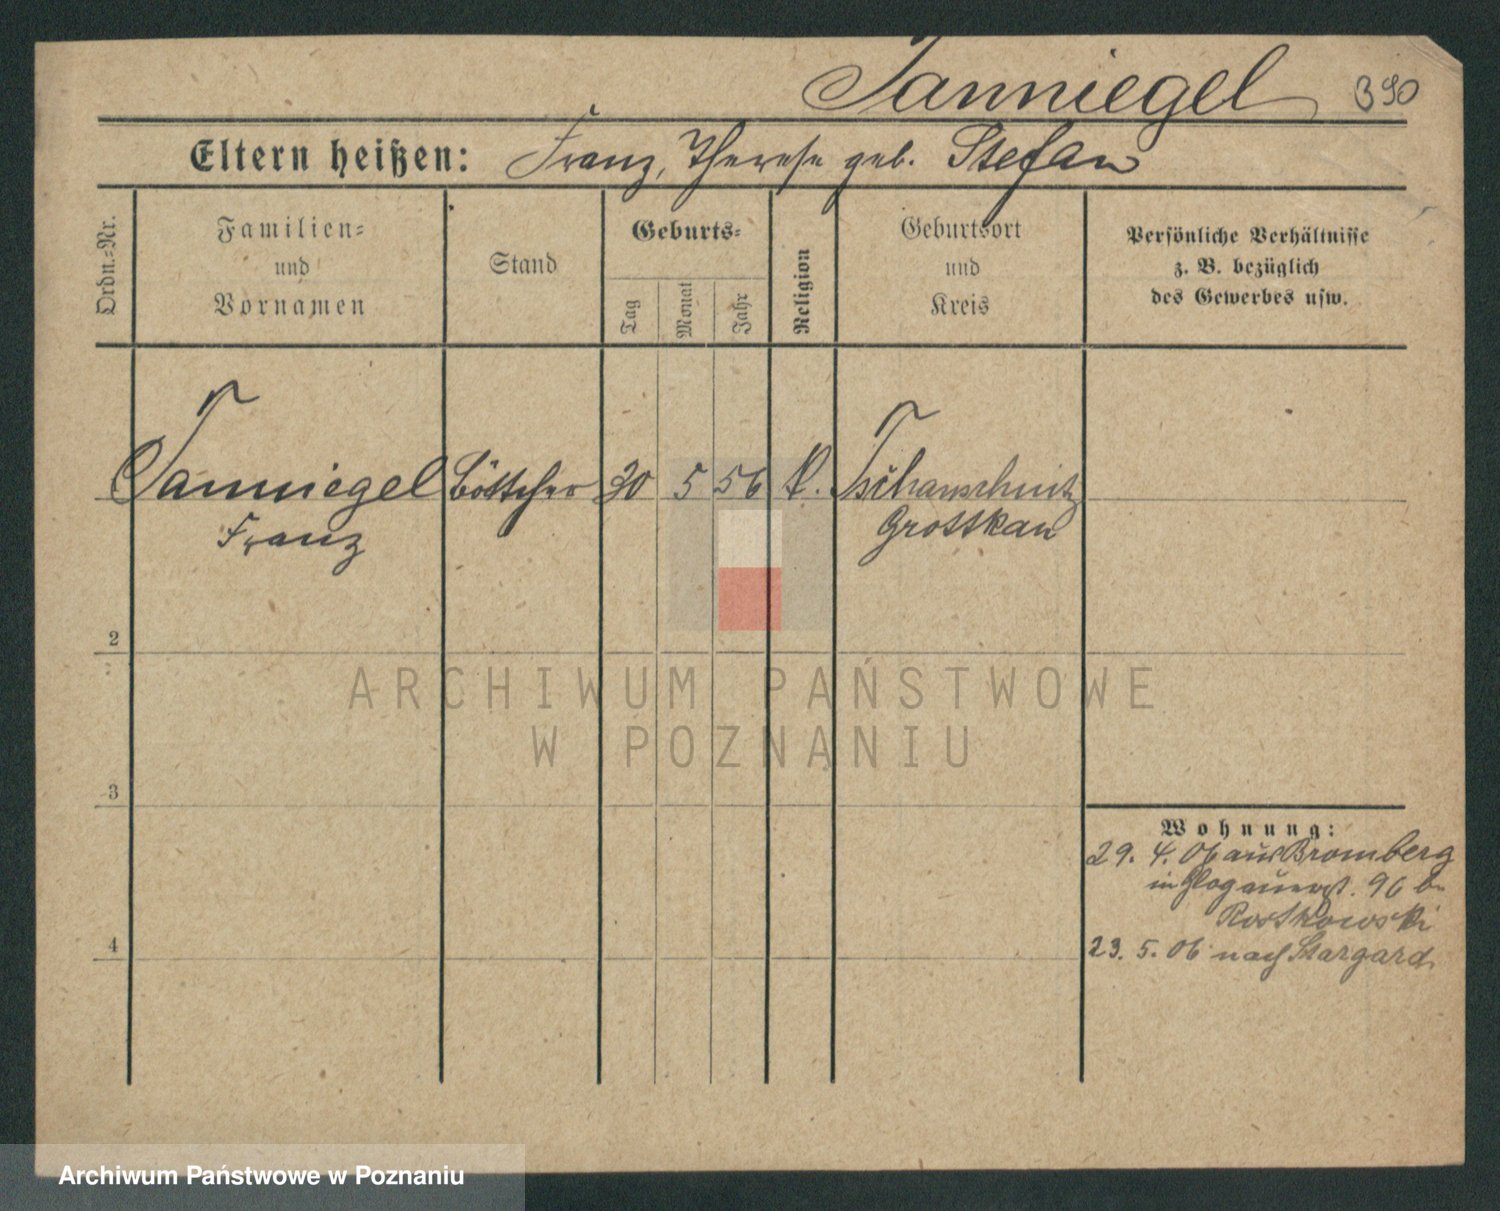 Tanniegel 390
Eltern heißen: Franz, Therese geb. Stefan
Ordn.-Nr.
Familien-
und
Vornamen
Stand
Geburts-
Tag
Monat
Jahr
Religion
Geburtsort
und
Kreis
Persönliche Verhältnisse
z. B. bezüglich
des Gewerbes usw.
Tanniegel Böttcher 20 5 56 k. Tschauschwitz
Franz Grottkau
2
3
4
Wohnung:
29. 4. 06 aus Bromberg
in Glogauerst. 96 b.
Rostkowski
23. 5. 06 nach Stargard
ARCHIWUM PAŃSTWOWE
W POZNANIU
Archiwum Państwowe w Poznaniu